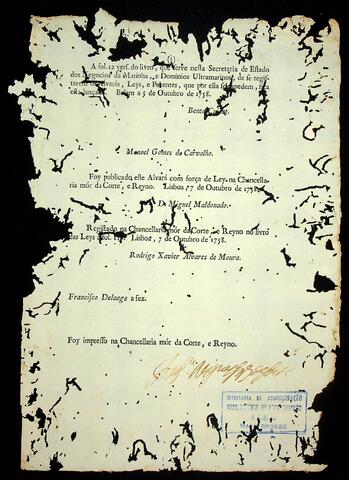 A fol. 12 vers. do livro, que serve nesta Secretaria de Estado
dos Negocios da Marinha, e Dominios Ultramarinos, de se regis-
tarem os Alvarás, Leys, e Patentes, que por ella se expedem, fica
este lançado. Belem a 5 de Outubro de 1758.
Manoel Gomes de Carvalho.
Foy publicado este Alvará com força de Ley na Chancella-
ria mór da Corte, e Reyno. Lisboa, 7 de Outubro de 1758.
D. Miguel Maldonado.
Registado na Chancellaria mór da Corte, e Reyno no livro
das Leys a fol. Lisboa, 7 de Outubro de 1758.
Rodrigo Xavier Alvares de Moura.
Francisco Delaage a fez.
Foy impresso na Chancellaria mór da Corte, e Reyno.
SECRETARIA DE ADMINISTRAÇÃO
MATO GROSSO